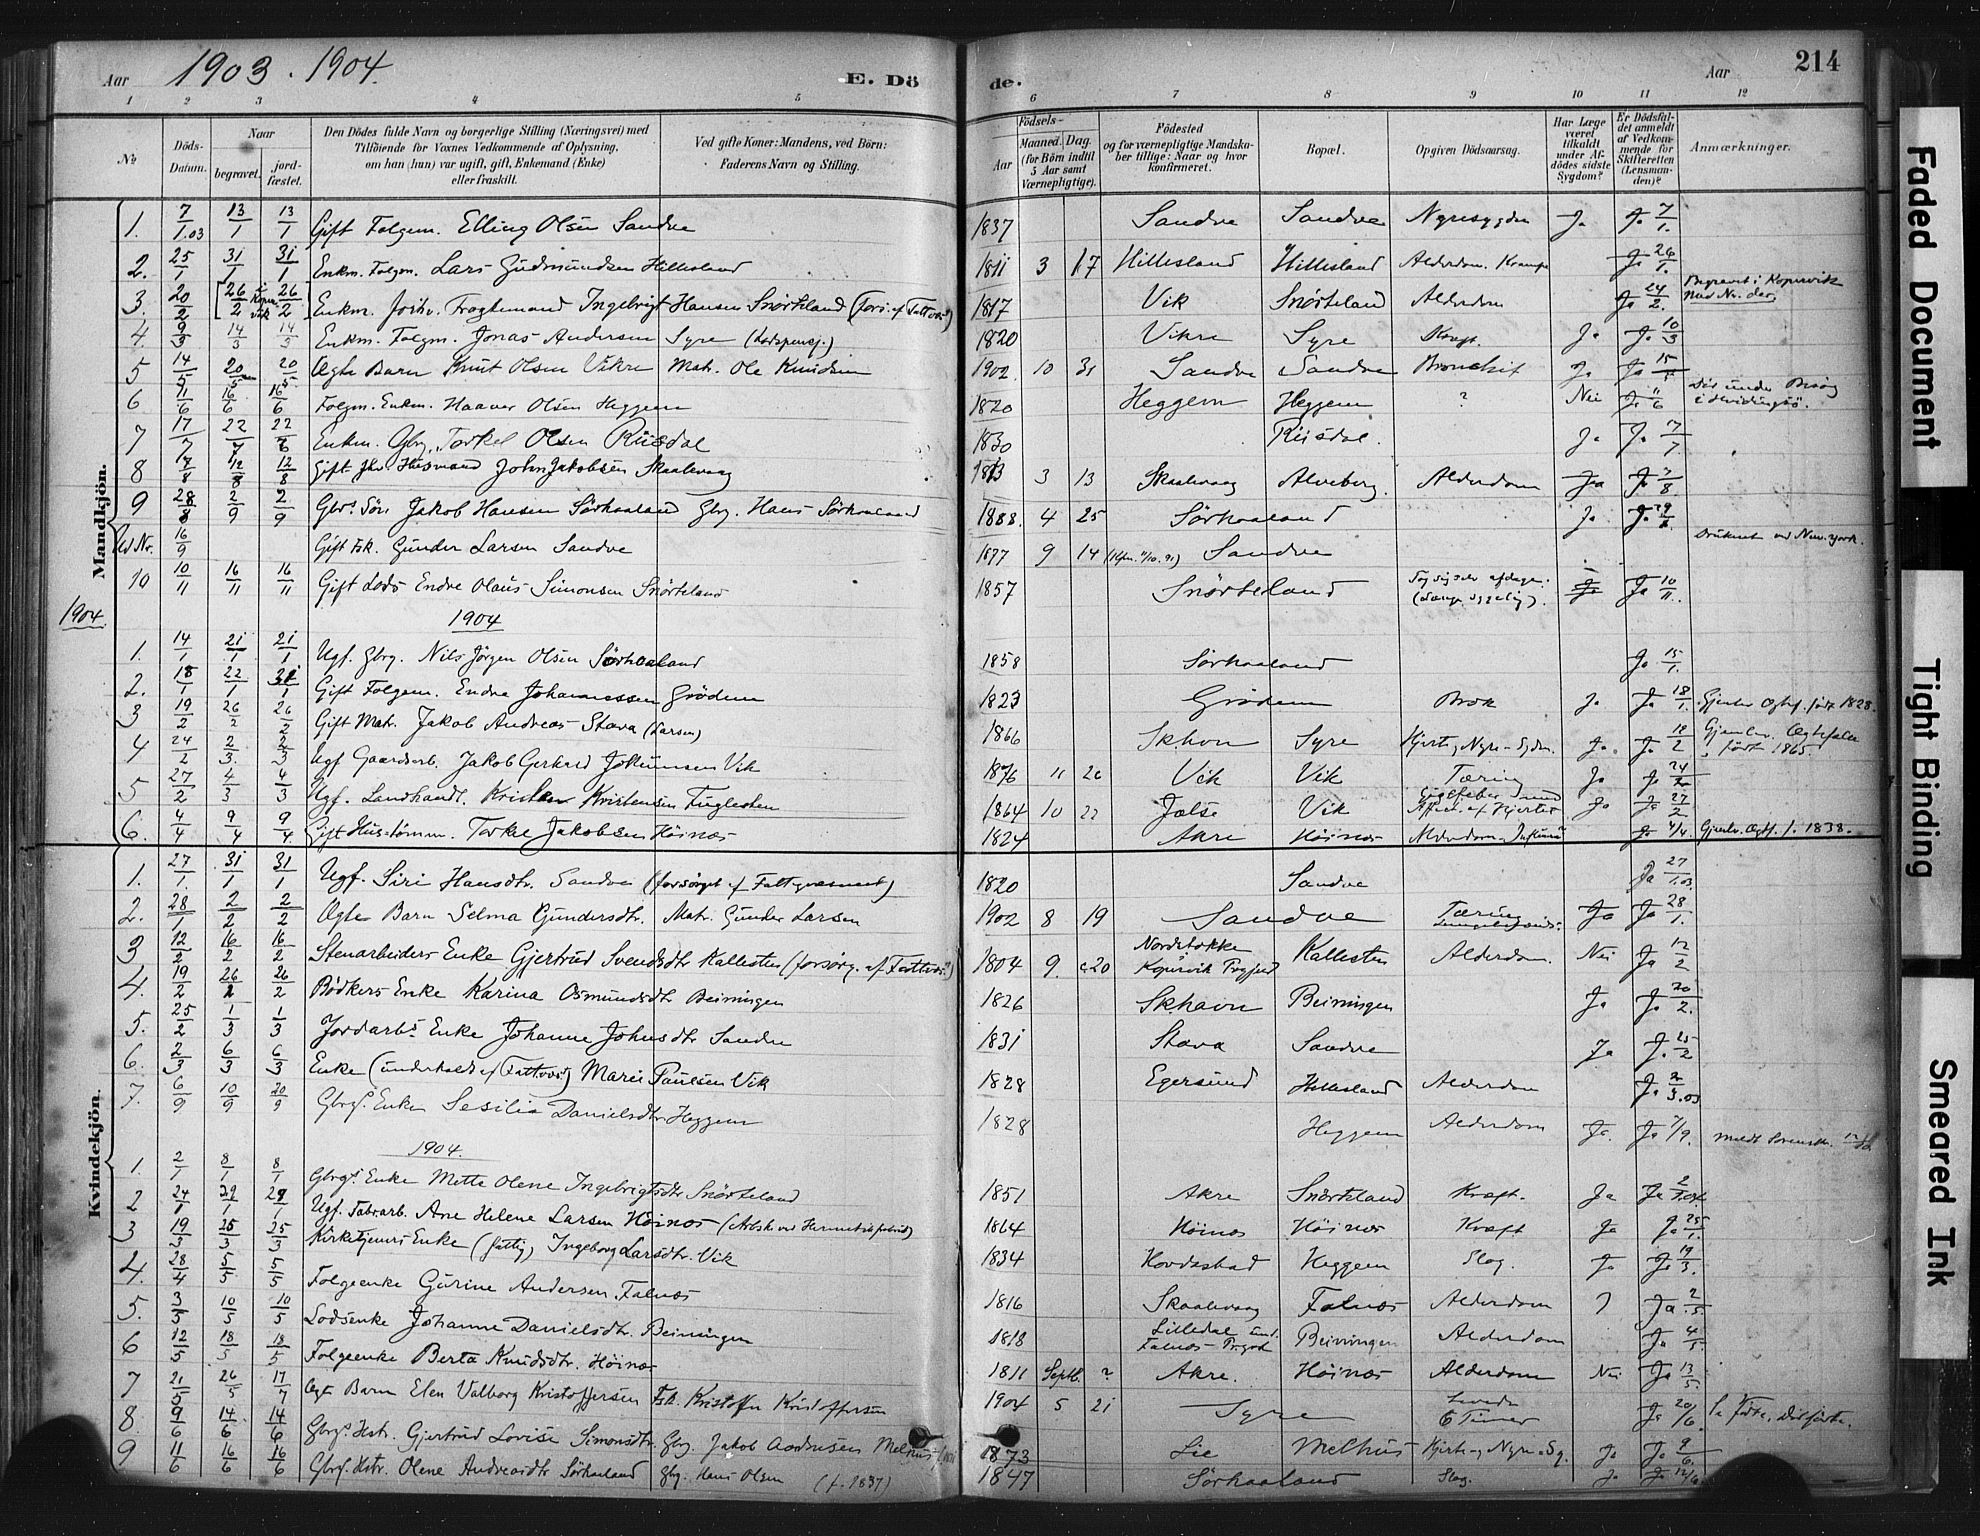 Aar 1903. 1904. E. Dö de. Aar 214
1 2 3 4 5 6 7 8 9 10 11 12
№ Döds-Datum. Naar begravet. jordfæstet. Den Dödes fulde Navn og borgerlige Stilling (Næringsvei) med Tilföiende for Voxnes Vedkommende af Oplysning, om han (hun) var ugift, gift, Enkemand (Enke) eller fraskilt. Ved gifte Koner: Mandens, ved Börn: Faderens Navn og Stilling. Födsels- Aar Maaned. Dag. (for Börn indtil 5 Aar samt Værnepligtige). Födested og for værnepligtige Mandskaber tillige: Naar og hvor konfirmeret. Bopæl. Opgiven Dödsaarsag. Har Læge været tilkaldt under Afdödes sidste Sygdom? Er Dödsfaldet anmeldt af Vedkommende for Skifteretten (Lensmanden)? Anmærkninger.
Mandkjön.
1. 7/1.03 13/1 13/1 Gift Folgem. Elling Olsen Sandve 1837 Sandve Sandve Nyresygdom Ja Ja 7/1.
2. 25/1 31/1 31/1 Enkm. Folgm. Lars Gudmundsen Hillesland 1811 3 17 Hillesland Hillesland Alderdom. Krampe Ja 26/1.
3. 20/2 26/2 26/2 Enkm. Fragtemand Ingebrigt Hansen Snörteland (fors. af Fattv.) 1817 Vik Snörteland Alderdom Ja 24/2. Begravet i Kopervik
4. 9/3 14/3 14/3 Enkm. Folgm. Jonas Andersen Syre (Lodspensj.) 1820 Vikre Syre Kræft. Ja Ja 10/3
5 14/5 20/5 20/5 Ægte Barn Knut Olsen Vikre Matr. Ole Knudsen 1902. 10 31 Sandve Sandve Bronchit Ja Ja 15/5
6 11/6 16/6 16/6 Folgm. Enkm. Haaver Olsen Heggem 1820 Heggem Heggem ? Nei Ja 11/6 Död under Besög
7 17/7 22/7 22/7 Enkm. Gbrg. Torkel Olsen Riisdal 1830 Riisdal. Ja Ja 17/7
8 7/8 12/8 12/8 Gift Husmand John Jakobsen Skaalevaag 1813 3 13 Skaalevaag Alveberg. Alderdom Ja Ja 7/8
9 28/8 2/9 2/9 Gbrs. Sön Jakob Hansen Sörhaaland Gbrg. Hans Sörhaaland 1888. 4 25 Sörhaaland Ja Ja
Ud Nr. 16/9 Gift Fsk. Gunder Larsen Sandve 1877 9 14 Sandve Druknet ved New York.
10 10/11 16/11 16/11 Gift Lods Endre Olaus Simonsen Snörteland 1857 Snörteland Tog sig selv afdage. Ja Ja 10/11.
1904. 1904
1. 14/1 21/1 21/1 Ugf. Gbrg. Nils Jörgen Olsen Sörhaaland 1858 Sörhaaland Ja 15/1.
2. 18/1 22/1 31/1 Gift Folgem. Endre Johannessen Grödem 1823 Grödem Brok Ja Ja 18/1. Gjenlev. Ægtef. födt 1828.
3 19/2 26/2 26/2 Gift Matr. Jakob Andreas Stava (Larsen) 1866 Skhavn Syre Hjerte, Nyre-Sygdm. Ja. Ja 18/2 Gjenlev. Ægtefælle födt 1865.
4 24/2 2/3. 2/3 Ugf. Gaardsarb. Jakob Gerhard Johannsen Vik 1876 11 26 Vik Vik Tæring Ja Ja 24/2
5 27/2 4/3 4/3 Ugf. Landhandl. Kristen Kristensen Fuglesten 1864 10 22 Jælse Vik Gigtfeber med Affect. af Hjertet Ja Ja 27/2
6. 4/4 9/4 9/4. Gift Hus-tömm. Torkel Jakobsen Höinæs 1824 Akre Höinæs Alderdom Ja 4/4. Gjenlev. Ægtf. f. 1838.
Kvindekjön.
1. 27/1. 31/1 31/1 Ugf. Siri Hansdtr. Sandve (forsörget af Fattigvæsenet) 1820 Sandve Ja 27/1.03
2. 28/1 2/2 2/2 Ægte Barn Selma Gundersdtr. Matr. Gunder Larsen 1902 8 19 Sandve Tæring Ja Ja 28/1.
3 12/2 16/2 16/2 Stenarbeiders Enke Gjertrud Svendsdtr Kallesten (forsörg. af Fattv.) 1804 9. 20 Nordstokke Kopervik Prgjeld Kallesten Alderdom. Nei Ja 12/2
4. 19/2 26/2 26/2 Bödkers Enke Karina Osmundsdtr Beiningen 1826 Skhavn Beiningen Ja Ja 20/2.
5. 25/2 1/3 1/3 Jordarbs. Enke Johanne Johnsdtr Sandve 1831 Stava Sandve Ja Ja 25/2
6. 2/3 6/3 6/3 Enke (underholdt af Fattvs.) Maren Paulsen Vik 1828 Egersund Hillesland Alderdom Ja 2/3.03
7. 6/9 10/9 20/9 Gbrgs. Enke Sesilia Danielsdtr. Heggem 1828 Heggem Alderdom Ja. Ja 7/9.
1904.
1. 2/1 8/1 8/1 Gbrgs. Enke Mette Olene Ingebrigtsdtr Snörteland 1851 Akre Snörteland Kræft. Ja Ja 2/1.04
2 24/1 29/1 29/1 Ugf. Fabrarb. Ane Helene Larsen Höinæs (Arbsk ved Hermetikfabrik) 1864 Höinæs Höinæs Kræft Ja Ja 25/1.
3 19/3 25/3 25/3 Kirketjeners Enke (fattig) Ingeborg Larsdtr. Vik 1834 Hovdastad Heggem Slag. Ja Ja 19/3.
4. 28/4 5/5 5/5 Folgeenke Gurine Andersen Falnæs 1816 Skaalevaag Falnæs Alderdom ? Ja 2/5.
5. 3/5 10/5 10/5 Lodsenke Johanne Danielsdtr. Beiningen 1818 Lilledal und. Falnæs Prgjd Beiningen Alderdom Ja 4/5
6 12/5 18/5 18/5 Folgeenke Berta Knudsdtr. Höinæs 1811 Septb. ? Akre. Höinæs Alderdom Nei Ja 13/5.
7 21/5 26/5 17/7 Ægt Barn Elen Valborg Kristoffersen Fsk. Kristofer Kristoffersen 1904 5 21 Syre Levede 6 Timer Ja 20/6.
8. 9/6 14/6 14/6 Gbrgs. Hstr. Gjertrud Lovise Simonsdtr. Gbrg. Jakob Aadnesen Melhus 1873 Lie Melhus Hjerte- og Nyre-Sg. Ja Ja 9/6.
9 11/6 16/6 16/6 Gbrgs. Hstr. Olene Andreasdtr Sörhaaland Gbrg. Hans Olsen (f. 1837) 1847 Sörhaaland Slag. Ja Ja 12/6
Faded Document
Tight Binding
Smeared Ink